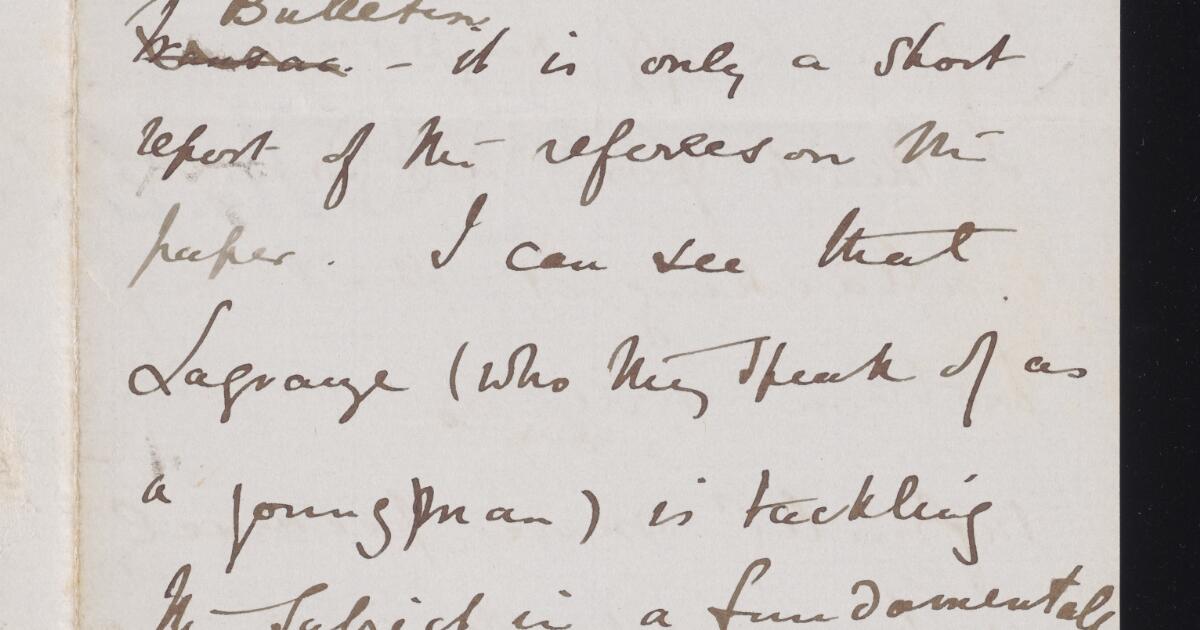 Bulletin
Transac. - it is only a short
report of the referees on the
paper. I can see that
Lagrange (who they speak of as
a young man) is tackling
the subject in a fundamental